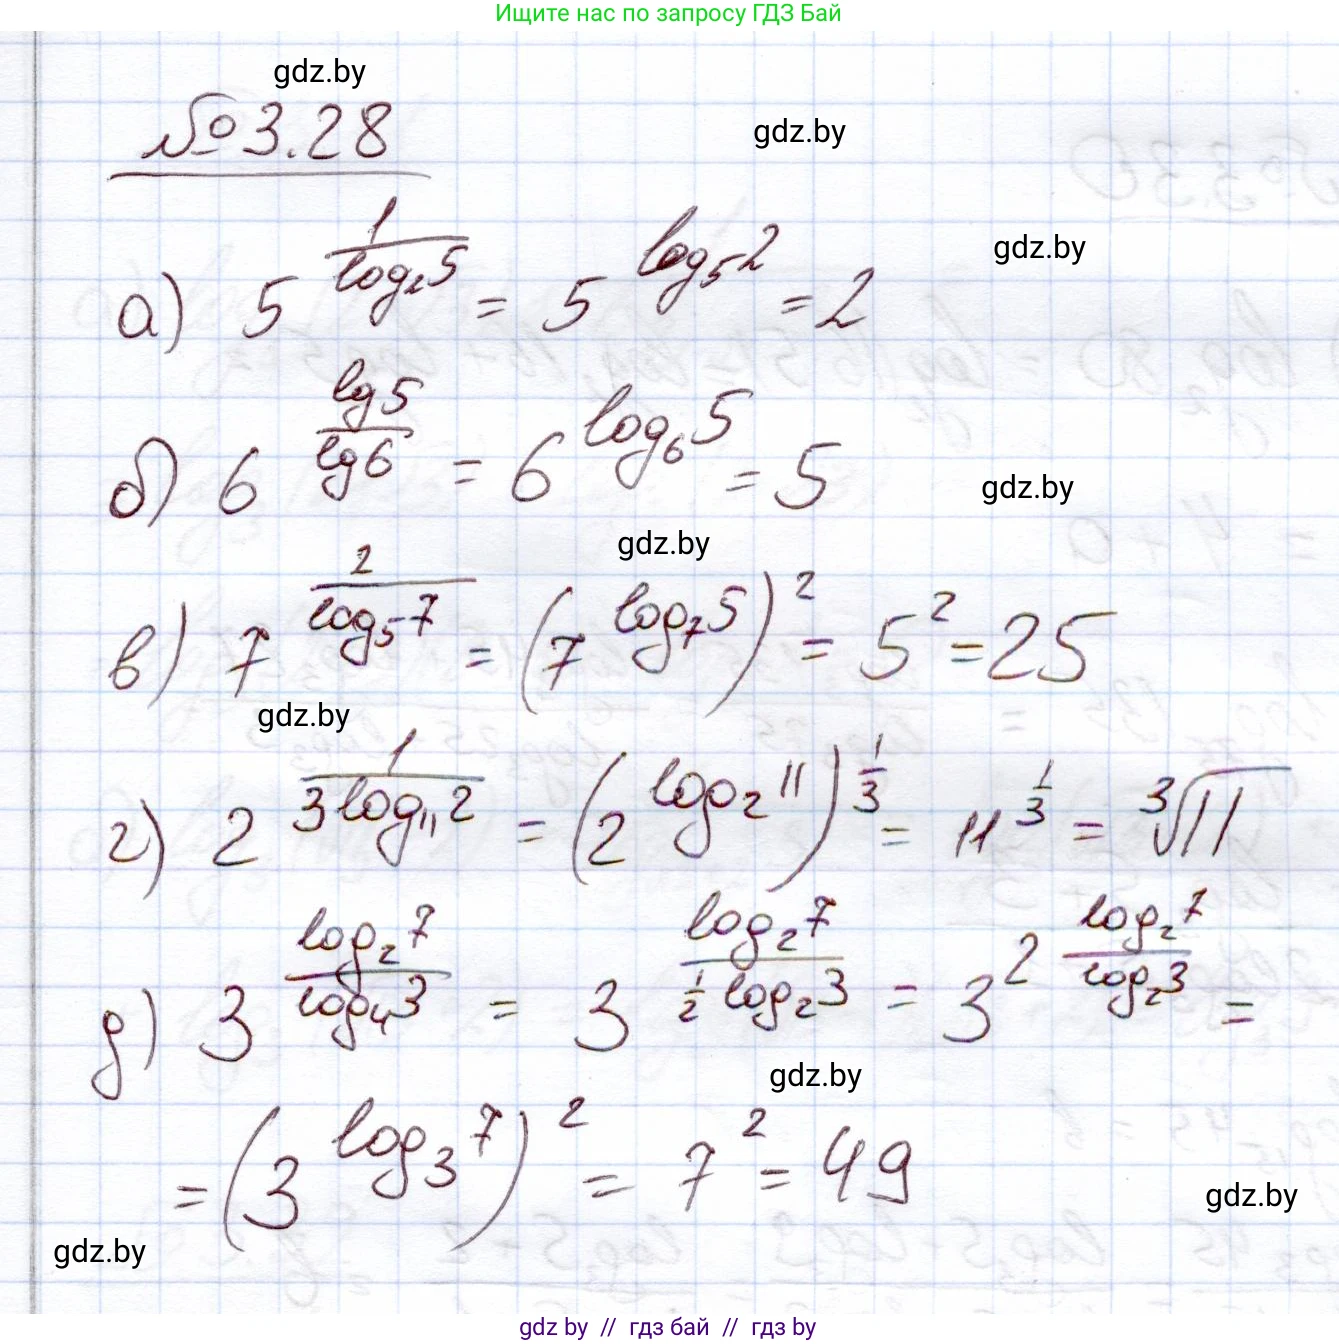 Ищите нас по запросу ГДЗ Бай
gdz.by
№3.28
gdz.by
gdz.by
а) 5^(1/log₂5) = 5^(log₅2) = 2
б) 6^(lg5/lg6) = 6^(log₆5) = 5
gdz.by
gdz.by
в) 7^(2/log₅7) = (7^(log₇5))² = 5² = 25
gdz.by
г) 2^(1/(3log₁₁2)) = (2^(log₂11))^(1/3) = 11^(1/3) = ³√11
д) 3^(log₂7/log₄3) = 3^(log₂7/(1/2 log₂3)) = 3^(2 log₂7/log₂3) =
gdz.by
= (3^(log₃7))² = 7² = 49
gdz.by
gdz.by
gdz by // гдз бай // gdz by